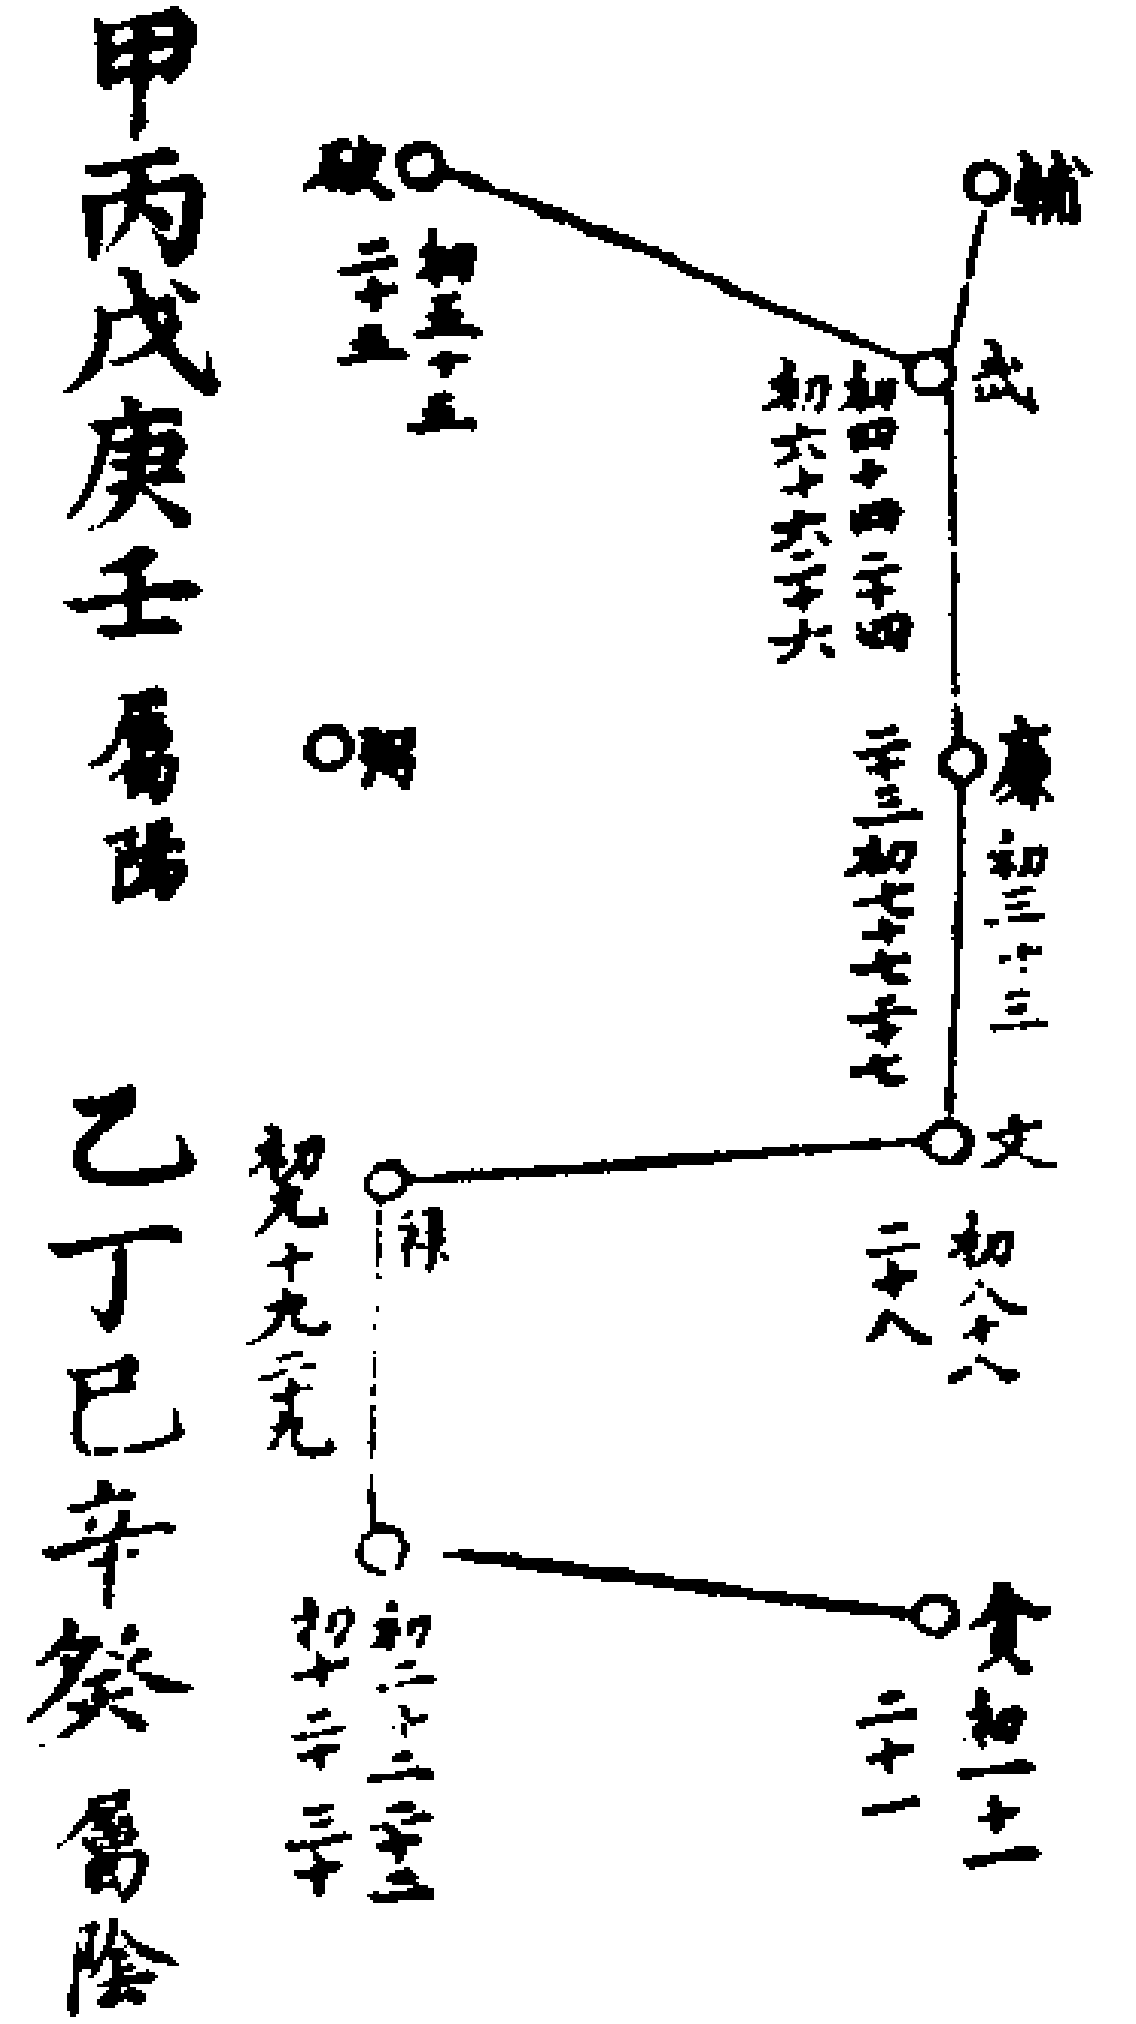 輔
武
初四十四二十四
初六十六二十六
廉
初三十三
二十三初七十七二十七
文
初八十八
二十八
貪
初一十一
二十一
破
初五十五
二十五
弼
祿
初九十九二十九
初二十二二十二
初十二十三十
甲丙戊庚壬屬陽
乙丁巳辛癸屬陰